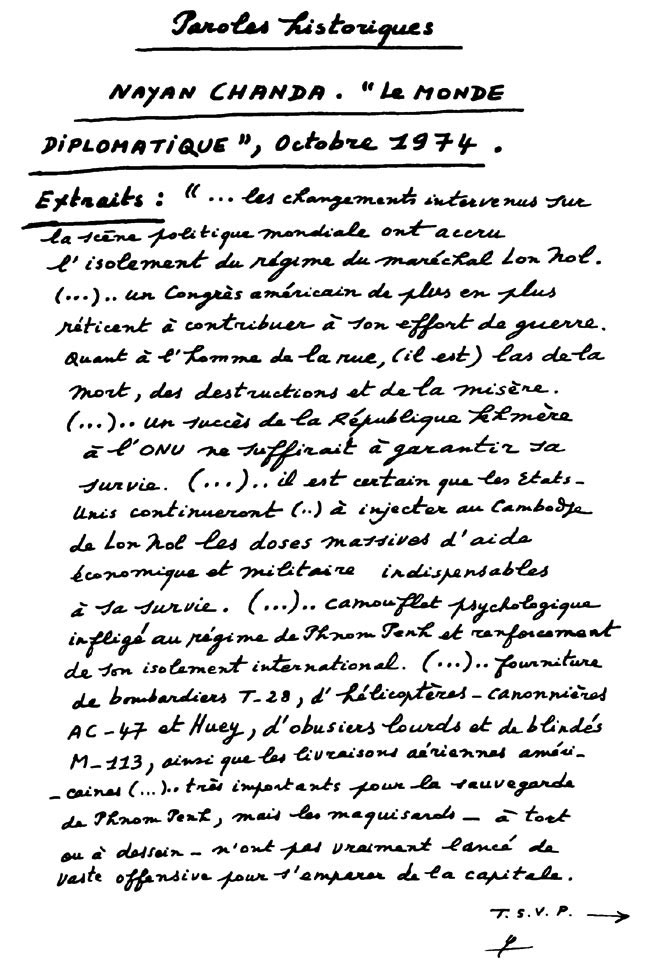 Paroles historiques
NAYAN CHANDA. "Le MONDE
DiPLOMATiQUE", Octobre 1974.
Extraits : "... les changements intervenus sur
la scène politique mondiale ont accru
l'isolement du régime du maréchal Lon Nol.
(...).. un Congrès américain de plus en plus
réticent à contribuer à son effort de guerre.
Quant à l'homme de la rue, (il est) las de la
mort, des destructions et de la misère.
(...).. un succès de la République Khmère
à l'ONU ne suffirait à garantir sa
survie. (...).. il est certain que les Etats-
Unis continueront (..) à injecter au Cambodje
de Lon Nol les doses massives d'aide
économique et militaire indispensables
à sa survie. (...).. camouflet psychologique
infligé au régime de Phnom Penh et renforcement
de son isolement international. (...).. fourniture
de bombardiers T-28, d'hélicoptères-canonnières
AC-47 et Huey, d'obusiers lourds et de blindés
M-113, ainsi que les livraisons aériennes améri-
-caines (...).. très importants pour la sauvegarde
de Phnom Penh, mais les maquisards - à tort
ou à dessein - n'ont pas vraiment lancé de
vaste offensive pour s'emparer de la capitale.
T.S.V.P. →